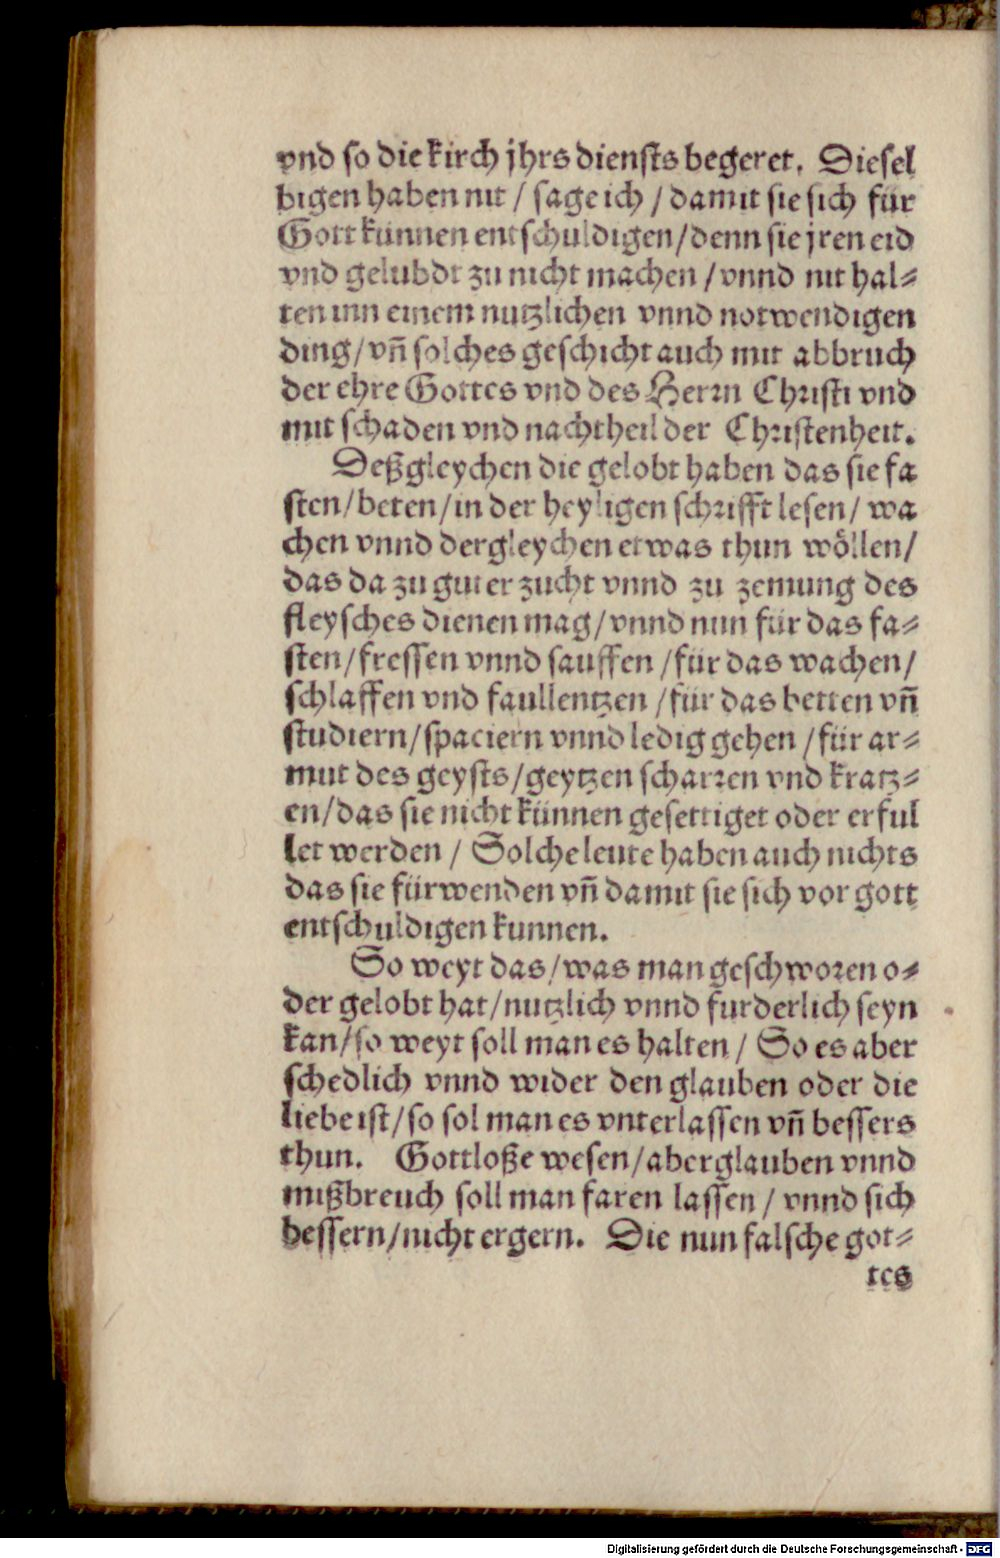 vnd so die kirch jhrs diensts begeret. Diesel
bigen haben nit / sage ich / damit sie sich für
Gott künnen entschuldigen/denn sie jren eid
vnd gelubdt zu nicht machen / vnnd nit hal⸗
ten inn einem nutzlichen vnnd notwendigen
ding/vñ solches geschicht auch mit abbruch
der ehre Gottes vnd des Herrn Christi vnd
mit schaden vnd nachtheil der Christenheit.
Deßgleychen die gelobt haben das sie fa
sten/beten/in der heyligen schrifft lesen/ wa
chen vnnd dergleychen etwas thun wöllen/
das da zu guter zucht vnnd zu zemung des
fleysches dienen mag/vnnd nun für das fa⸗
sten/fressen vnnd sauffen /für das wachen/
schlaffen vnd faullentzen /für das betten vñ
studiern/spaciern vnnd ledig gehen /für ar⸗
mut des geysts/geytzen scharren vnd kratz⸗
en/das sie nicht künnen gesettiget oder erful
let werden / Solche leute haben auch nichts
das sie fürwenden vñ damit sie sich vor gott
entschuldigen kunnen.
So weyt das/was man geschworen o⸗
der gelobt hat/nutzlich vnnd furderlich seyn
kan/so weyt soll man es halten / So es aber
schedlich vnnd wider den glauben oder die
liebe ist/so sol man es vnterlassen vñ bessers
thun. Gottloße wesen/aberglauben vnnd
mißbreuch soll man faren lassen / vnnd sich
bessern/nicht ergern. Die nun falsche got⸗
tes
Digitalisierung gefördert durch die Deutsche Forschungsgemeinschaft - DFG